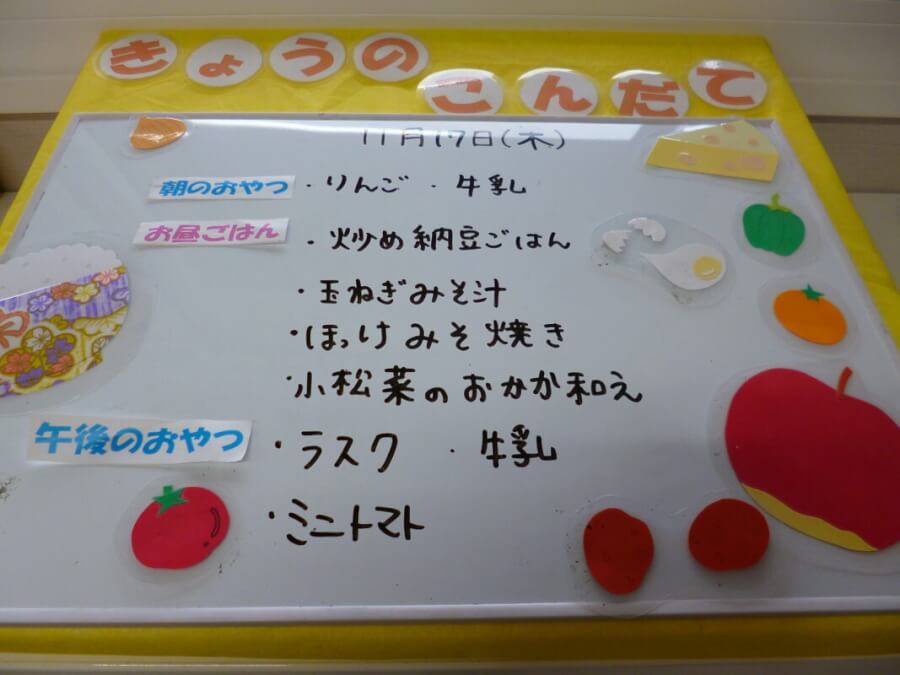 きょうの
こんだて
11月17日(木)
朝のおやつ ・りんご ・牛乳
お昼ごはん ・炒め納豆ごはん
・玉ねぎみそ汁
・ほっけみそ焼き
・小松菜のおかか和え
午後のおやつ ・ラスク ・牛乳
・ミニトマト